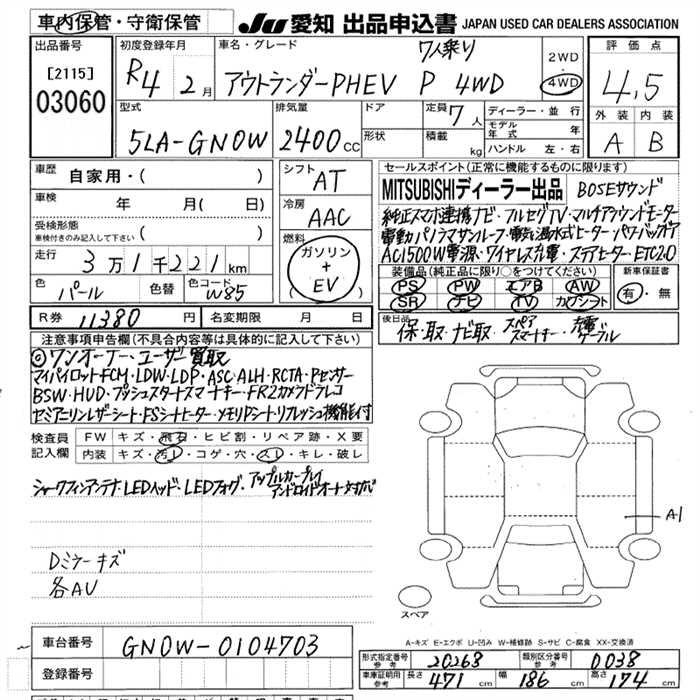 車内保管・守衛保管
JU 愛知 出品申込書 JAPAN USED CAR DEALERS ASSOCIATION
出品番号
[2115]
03060
初度登録年月
R4 2月
車名・グレード
7人乗り
アウトランダーPHEV P 4WD
2WD
・
4WD
評価点
4.5
外装 内装
A B
型式
5LA-GN0W
排気量
2400CC
ドア
形状
定員 7人
積載 kg
ディーラー・並行
モデル年式 年
ハンドル 左・右
車歴
自家用・( )
車検
年 月( 日)
受検形態
車検付きのみ記入して下さい ( )
走行
3万1千221km
色
パール
色替
色コード
W85
シフト
AT
冷房
AAC
燃料
ガソリン
+
EV
( )
セールスポイント(正常に機能するものに限ります)
MITSUBISHIディーラー出品 BOSEサウンド
純正スマホ連携ナビ・フルセグTV・マルチアラウンドモニター
電動パノラマサンルーフ・電気温水式ヒーター・パワーバックドア
AC1500W電源・ワイヤレス充電・ステアヒーター・ETC2.0
装備品(純正品に限り○をつけてください)
PS PW エアB AW
SR ナビ TV カワシート
新車保証書
有・無
R券 11380 円
名変期限 月 日
後日品
保・取・ナビ取・スペアスマートキー・充電ケーブル
注意事項申告欄(不具合内容等は具体的に記入して下さい)
◎ワンオーナー・ユーザー買取
マイパイロット・FCM・LDW・LDP・ASC・ALH・RCTA・Pセンサー
BSW・HUD・プッシュスタートスマートキー・FR2カメラドラレコ
セミアニリンレザーシート・FSシートヒーター・メモリPシート・リフレッシュ機能付
検査員
記入欄
FW キズ・飛石・ヒビ割・リペア跡・X要
内装 キズ・汚レ・コゲ・穴・スレ・キレ・破レ
シャークフィンアンテナ・LEDヘッド・LEDフォグ・アップルカープレイ
アンドロイドオート対応
Dミラーキズ
各AU
A1
スペア
A-キズ E-エクボ U-凹み W-補修跡 S-サビ C-腐食 XX-交換済
車台番号
GN0W-0104703
登録番号
形式指定番号
参考
20268
類別区分番号
参考
0038
車庫証明用
参考
長さ 471 cm 幅 186 cm 高さ 174 cm